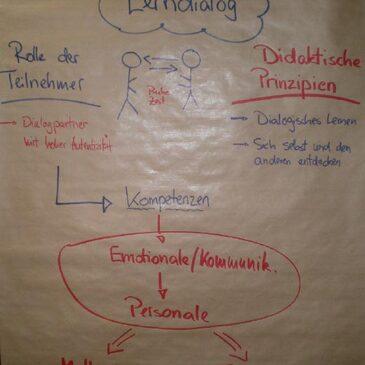 Lerndialog
Rolle der
Teilnehmer
→ Dialogpartner
mit hoher Autentizität
Ruhe
Zeit
Didaktische
Prinzipien
→ Dialogisches Lernen
→ Sich selbst und den
anderen entdecken
Kompetenzen
Emotionale/Kommunik.
Personale